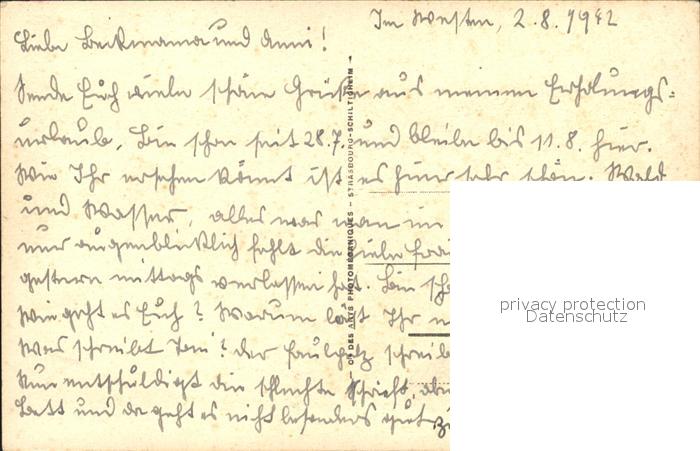 Im Westen, 2.8.1942
Liebe Beckmama und Anni!
Sende Euch viele schöne Grüße aus meinem Erholungs-
urlaub. Bin schon seit 28.7. und bleibe bis 11.8. hier.
Wie Ihr ersehen könnt ist es hier sehr schön. Wald
und Wasser, alles was man im
nur augenblicklich fehlt die liebe
gestern mittags verlassen hat. Bin
Wie geht es Euch? Warum lässt Ihr
Was schreibt Toni? der Faulpelz schreib
Nun entschuldigt die schlechte Schrift,
Bett und da geht es nicht besonders gut
CIE DES ARTS PHOTOMECANIQUES - STRASBOURG-SCHILTIGHEIM
privacy protection
Datenschutz